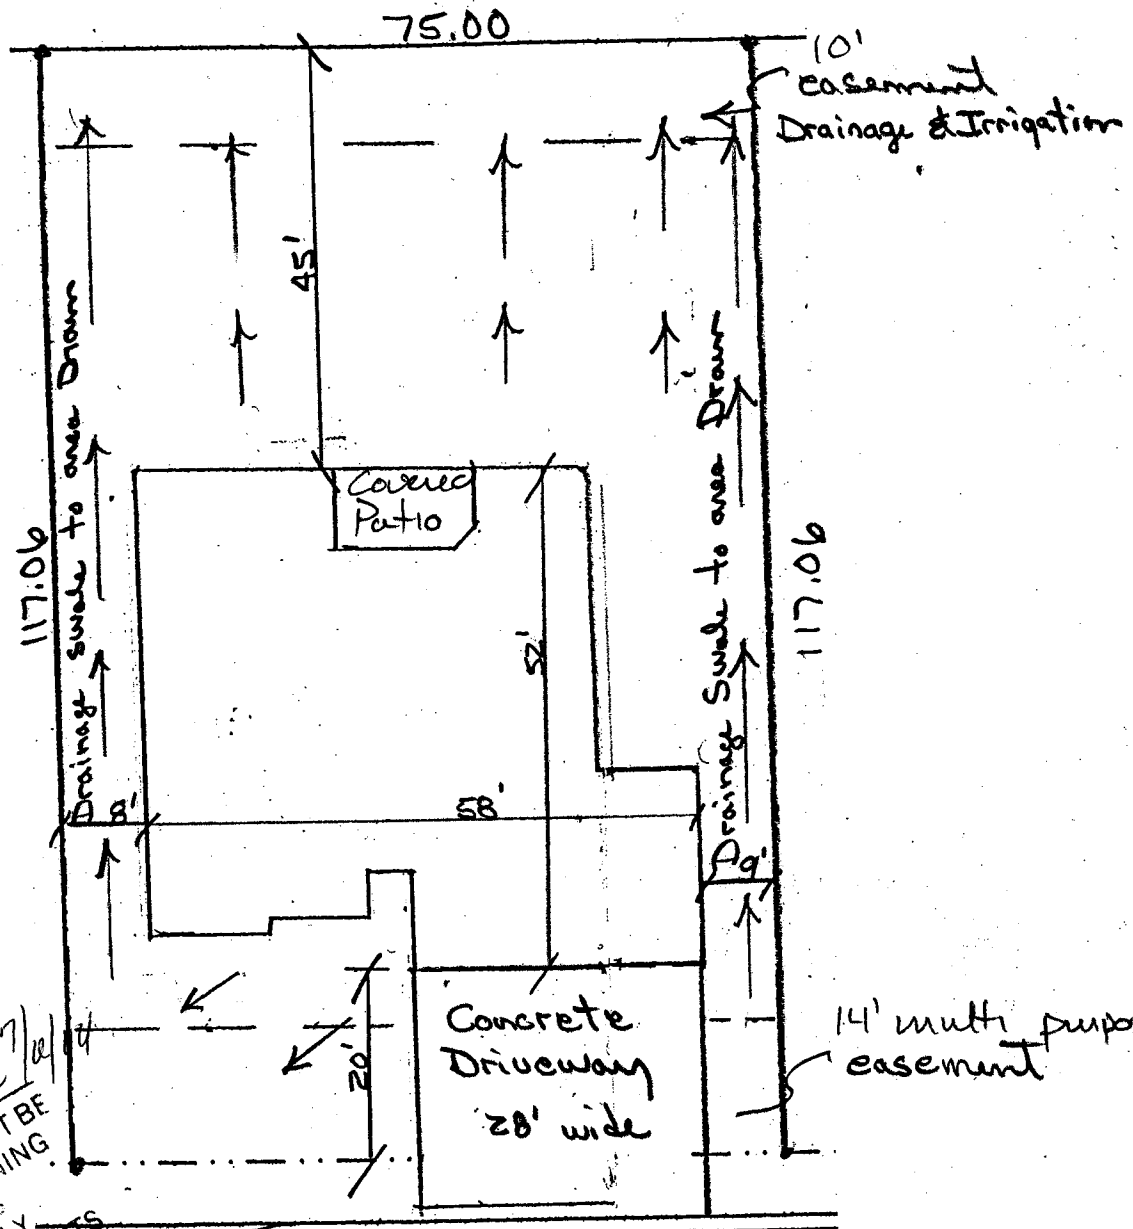 75.00
10'
easement
Drainage & Irrigation
45'
Drainage swale to area Drain
Drainage Swale to area Drain
Covered
Patio
117.06
117.06
52'
8'
58'
9'
20'
Concrete
Driveway
28' wide
14' multi purpo
easement
T BE